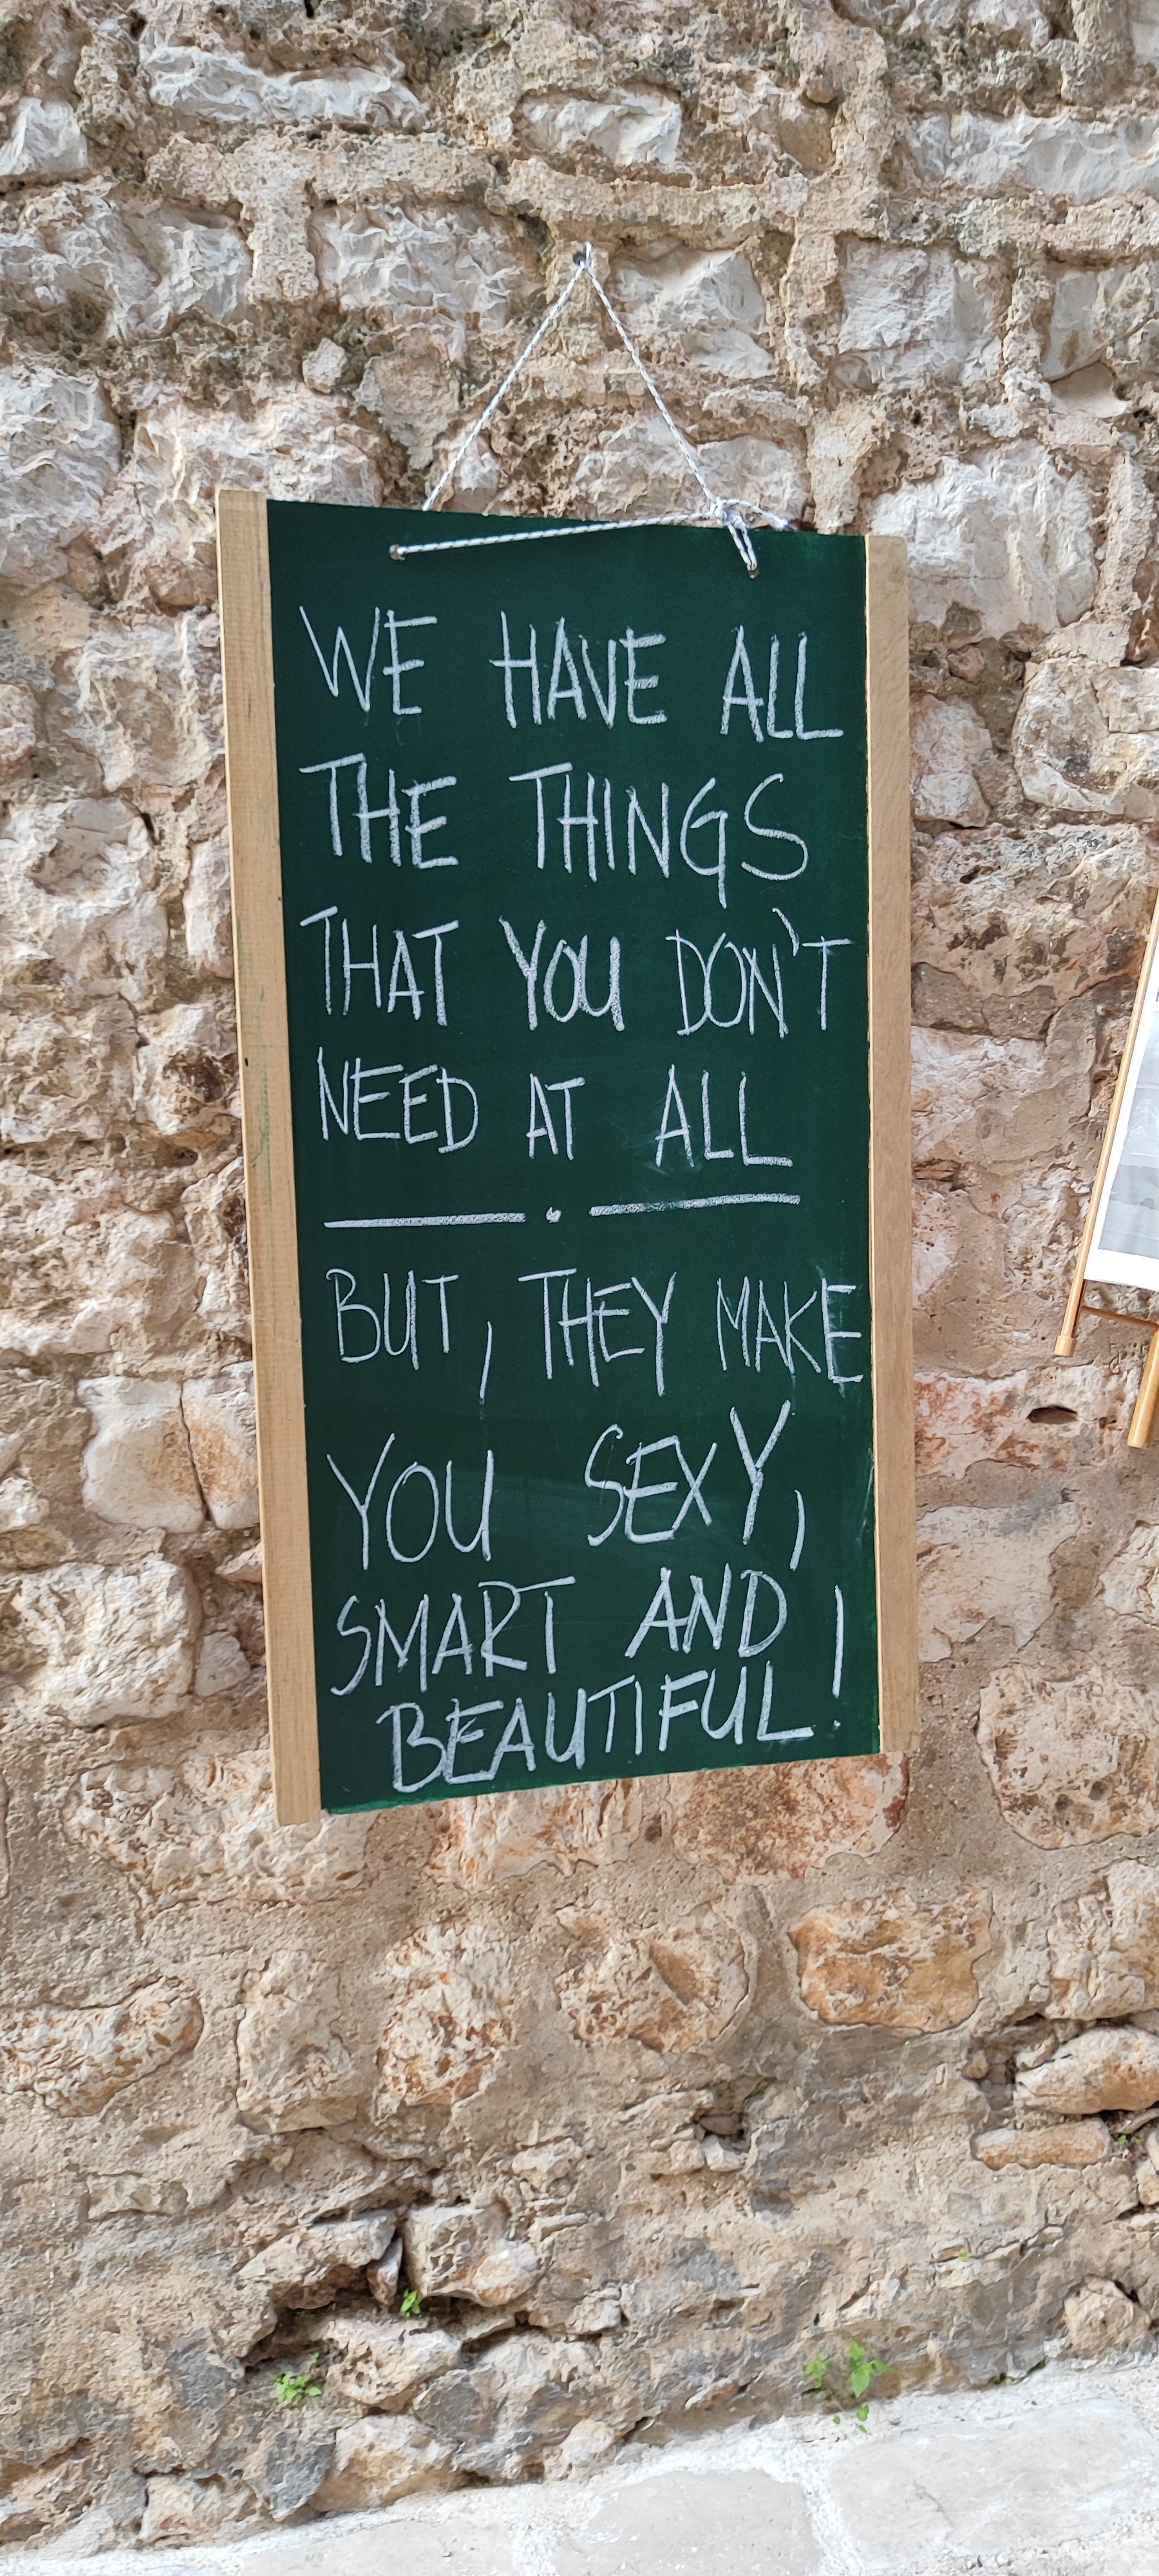 WE HAVE ALL
THE THINGS
THAT YOU DON'T
NEED AT ALL
BUT, THEY MAKE
YOU SEXY,
SMART AND
BEAUTIFUL!